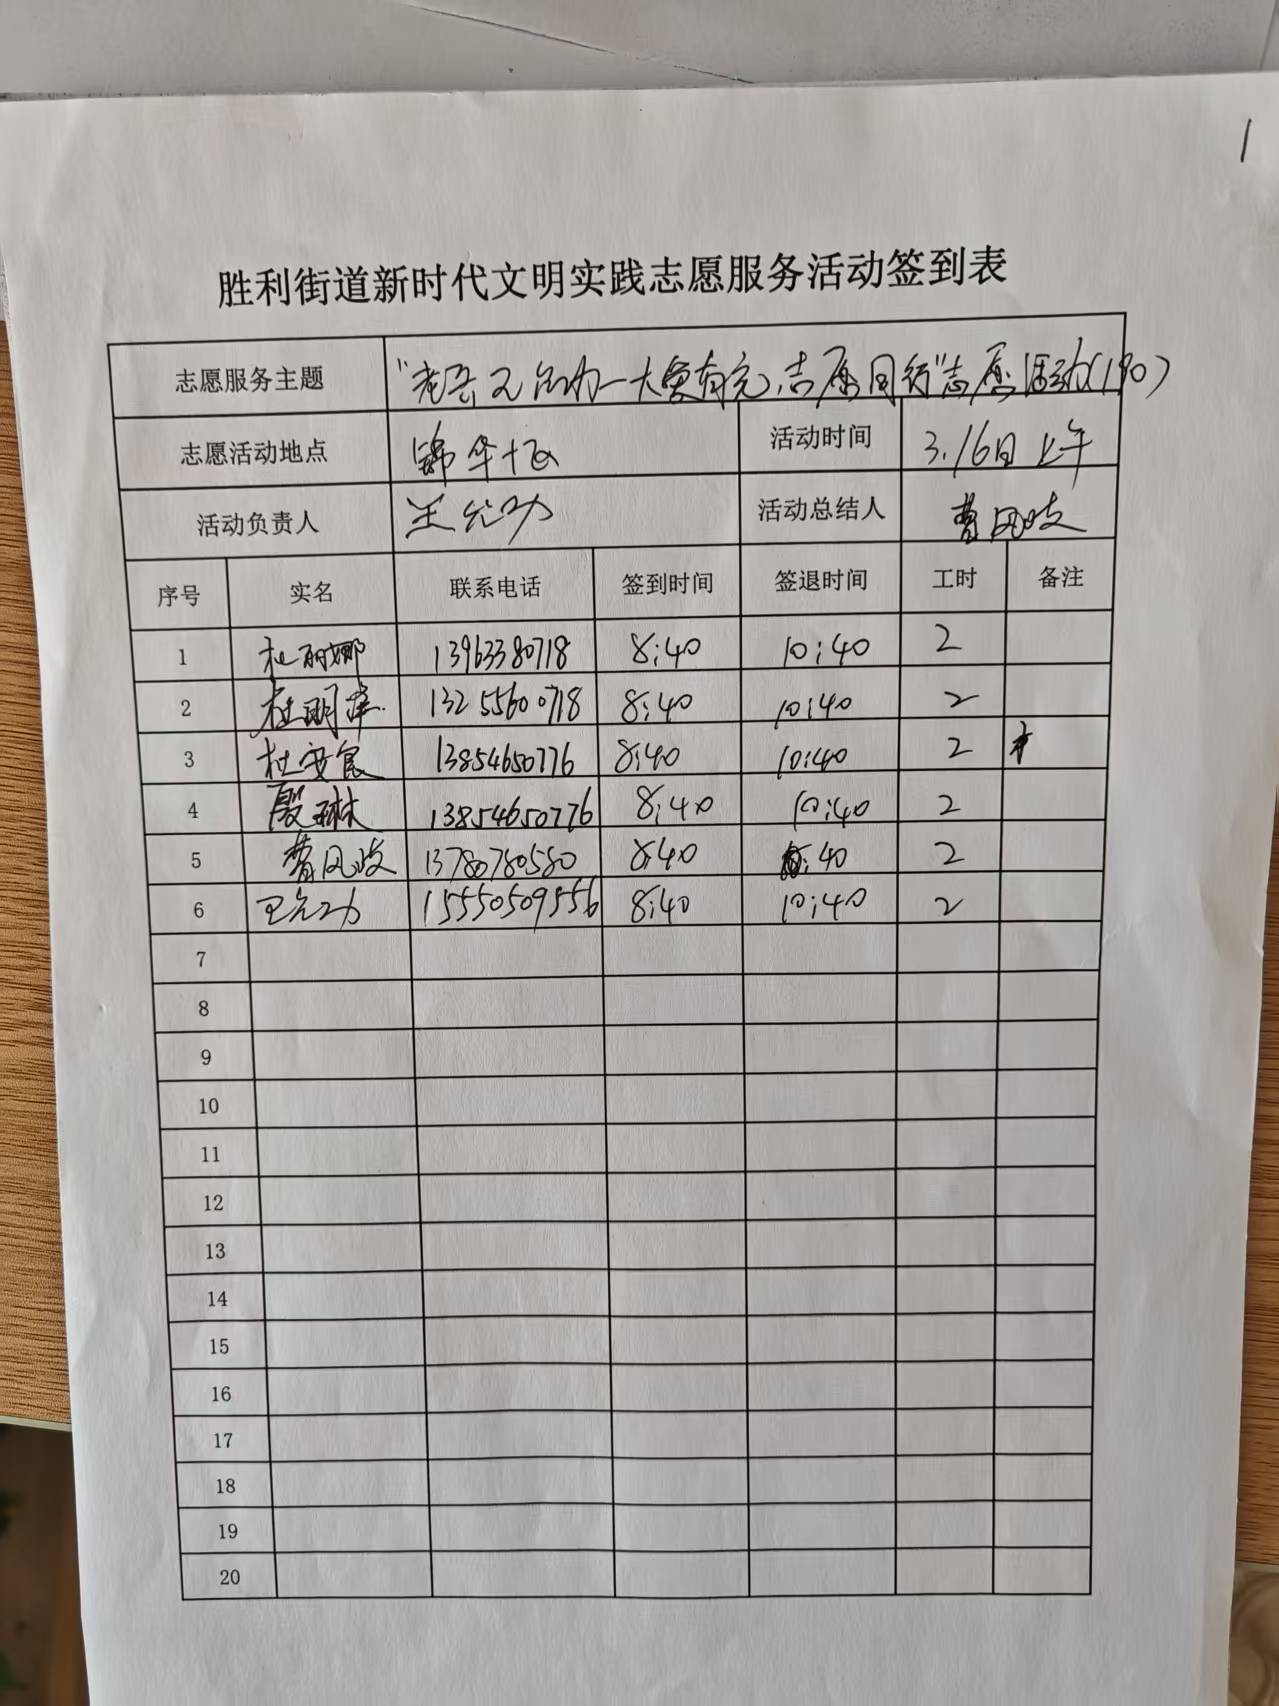 1
胜利街道新时代文明实践志愿服务活动签到表
志愿服务主题 志愿同行"志愿活动(190)
志愿活动地点 锦华十区 活动时间 3.16日上午
活动负责人 王允功 活动总结人 曹风岐
序号 实名 联系电话 签到时间 签退时间 工时 备注
1 杜丽娜 13963380718 8:40 10:40 2
2 杜明 13255600718 8:40 10:40 2
3 杜安民 13854650776 8:40 10:40 2
4 殷琳 13854650776 8:40 10:40 2
5 曹风岐 13780780580 8:40 :40 2
6 王允功 15550509556 8:40 10:40 2
7
8
9
10
11
12
13
14
15
16
17
18
19
20